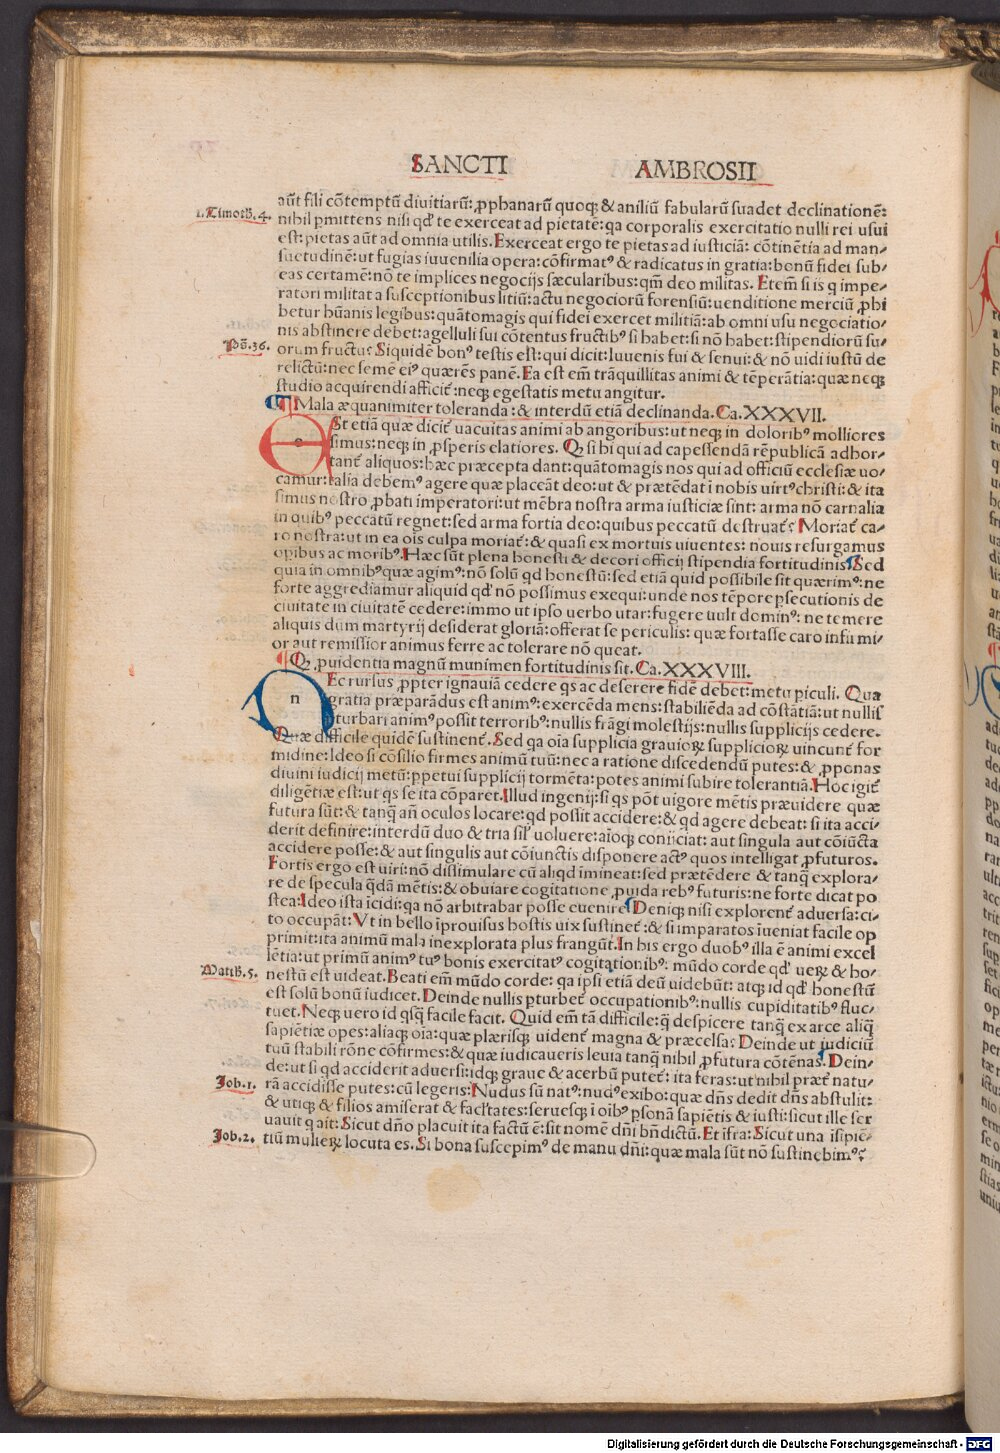 SANCTI AMBROSII
aūt fili cōtemptū diuitiarū: ꝓphanarū quoqꝫ & aniliū fabularū suadet declinationē:
1. Timoth. 4.
nihil ꝑmittens nisi qđ te exerceat ad pietatē: qa corporalis exercitatio nulli rei usui
est: pietas aūt ad omnia utilis. Exerceat ergo te pietas ad iusticiā: cōtinētia ad man/
suetudinē: ut fugias iuuenilia opera: cōfirmatꝰ & radicatus in gratia: bonū fidei sub/
eas certamē: nō te implices negocijs sæcularibus: qm̄ deo militas. Etem̄ si is q impe/
ratori militat a susceptionibus litiū: actu negociorū forensiū: uenditione merciū ꝓhi
betur hūanis legibus: quātomagis qui fidei exercet militiā: ab omni usu negociatio/
nis abstinere debet: agelluli sui cōtentus fructibꝰ si habet: si nō habet: stipendiorū su/
Ps̄. 36.
orum fructu: Siquidē bonꝰ testis est: qui dicit: Iuuenis fui & senui: & nō uidi iustū de
relictū: nec semē eiꝰ quærēs panē. Ea est em̄ trāquillitas animi & tēperātia: quæ neqꝫ
studio acquirendi afficit̄: neqꝫ egestatis metu angitur.
¶ Mala æquanimiter toleranda: & interdū etiā declinanda. Ca. XXXVII.
e
St etiā quæ dicit̄ uacuitas animi ab angoribus: ut neqꝫ in doloribꝰ molliores
simus: neqꝫ in ꝓsperis elatiores. Qꝫ si hi qui ad capessendā rēpublicā adhor/
tant̄ aliquos: hæc præcepta dant: quātomagis nos qui ad officiū ecclesiæ uo/
camur: talia debemꝰ agere quæ placeāt deo: ut & prætēdat̄ ī nobis uirtꝰ christi: & ita
simus nostro ꝓbati imperatori: ut mēbra nostra arma iusticiæ sint: arma nō carnalia
in quibꝰ peccatū regnet: sed arma fortia deo: quibus peccatū destruat̄: Moriat̄ ca/
ro nostra: ut in ea oīs culpa moriat̄: & quasi ex mortuis uiuentes: nouis resurgamus
opibus ac moribꝰ. Hæc sūt plena honesti & decori officij stipendia fortitudinis. Sed
quia in omnibꝰ quæ agimꝰ: nō solū qđ honestū: sed etiā quid possibile sit quærimꝰ: ne
forte aggrediamur aliquid qđ nō possimus exequi: unde nos tēpore ꝑsecutionis de
ciuitate in ciuitatē cedere: immo ut ipso uerbo utar: fugere uult dominꝰ: ne temere
aliquis dum martyrij desiderat gloriā: offerat se periculis: quæ fortasse caro infirmi/
or aut remissior animus ferre ac tolerare nō queat.
¶ Qꝫ ꝓuidentia magnū munimen fortitudinis sit. Ca. XXXVIII.
n
Ec rursus ꝓpter ignauiā cedere qs ac deserere fidē debet: metu piculi. Qua
gratia præparādus est animꝰ: exercēda mens: stabiliēda ad cōstātiā: ut nullis
ꝑturbari animꝰ possit terroribꝰ: nullis frāgi molestijs: nullis supplicijs cedere.
Quæ difficile quidē sustinent̄. Sed qa oīa supplicia grauioꝝ supplicioꝝ uincunt̄ for
midine: Ideo si cōsilio firmes animū tuū: nec a ratione discedendū putes: & ꝓponas
diuini iudicij metū: ꝑpetui supplicij tormēta: potes animi subire tolerantiā. Hoc igit̄
diligētiæ est: ut qs se ita cōparet. Illud ingenij: si qs pōt uigore mētis præuidere quæ
futura sūt: & tanq̄ an̄ oculos locare: qd possit accidere: & qd agere debeat: si ita acci/
derit definire: interdū duo & tria sil̄ uoluere: aīoqꝫ conijciat: aut singula aut cōiūcta
accidere posse: & aut singulis aut cōiunctis disponere actꝰ quos intelligat ꝓfuturos.
Fortis ergo est uiri: nō dissimulare cū aliqd imineat: sed prætēdere & tanq̄ explora/
re de specula q̄dā mētis: & obuiare cogitatione ꝓuida rebꝰ futuris: ne forte dicat po
stea: Ideo ista īcidi: qa nō arbitrabar posse euenire. Deniqꝫ nisi explorent̄ aduersa: ci/
to occupāt: Vt in bello īprouisus hostis uix sustinet̄: & si imparatos īueniat facile op
primit: ita animū mala inexplorata plus frangūt. In his ergo duobꝰ illa ē animi excel
lētia: ut primū animꝰ tuꝰ bonis exercitatꝰ cogitationibꝰ: mūdo corde qđ ueꝝ & ho/
Matth. 5.
nestū est uideat. Beati em̄ mūdo corde: qa ipsi etiā deū uidebūt: atqꝫ id qđ honestū
est solū bonū iudicet. Deinde nullis ꝑturbet̄ occupationibꝰ: nullis cupiditatibꝰ fluc/
tuet. Neqꝫ uero id qsq̄ facile facit. Quid em̄ tā difficile: q̄ despicere tanq̄ ex arce aliq̄
sapiētiæ opes: aliaqꝫ oīa: quæ plærisqꝫ uident̄ magna & præcelsa: Deinde ut iudiciū
tuū stabili rōne cōfirmes: & quæ iudicaueris leuia tanq̄ nihil ꝓfutura cōtēnas. Dein/
de: ut si qd acciderit aduersi: idqꝫ graue & acerbū putet̄: ita feras: ut nihil præt̄ natu/
Job. 1.
rā accidisse putes: cū legeris: Nudus sū natꝰ: nudꝰ exibo: quæ dn̄s dedit dn̄s abstulit:
& utiqꝫ & filios amiserat & facl̄tates: seruesqꝫ ī oībꝰ ꝑsonā sapiētis & iusti: sicut ille ser
uauit q ait: Sicut dn̄o placuit ita factū ē: sit nomē dn̄i bn̄dictū. Et īfra: Sicut una īsipiē/
Job. 2.
tiū mulieꝝ locuta es. Si bona suscepimꝰ de manu dn̄i: quæ mala sūt nō sustinebimꝰ:
Digitalisierung gefördert durch die Deutsche Forschungsgemeinschaft - DFG